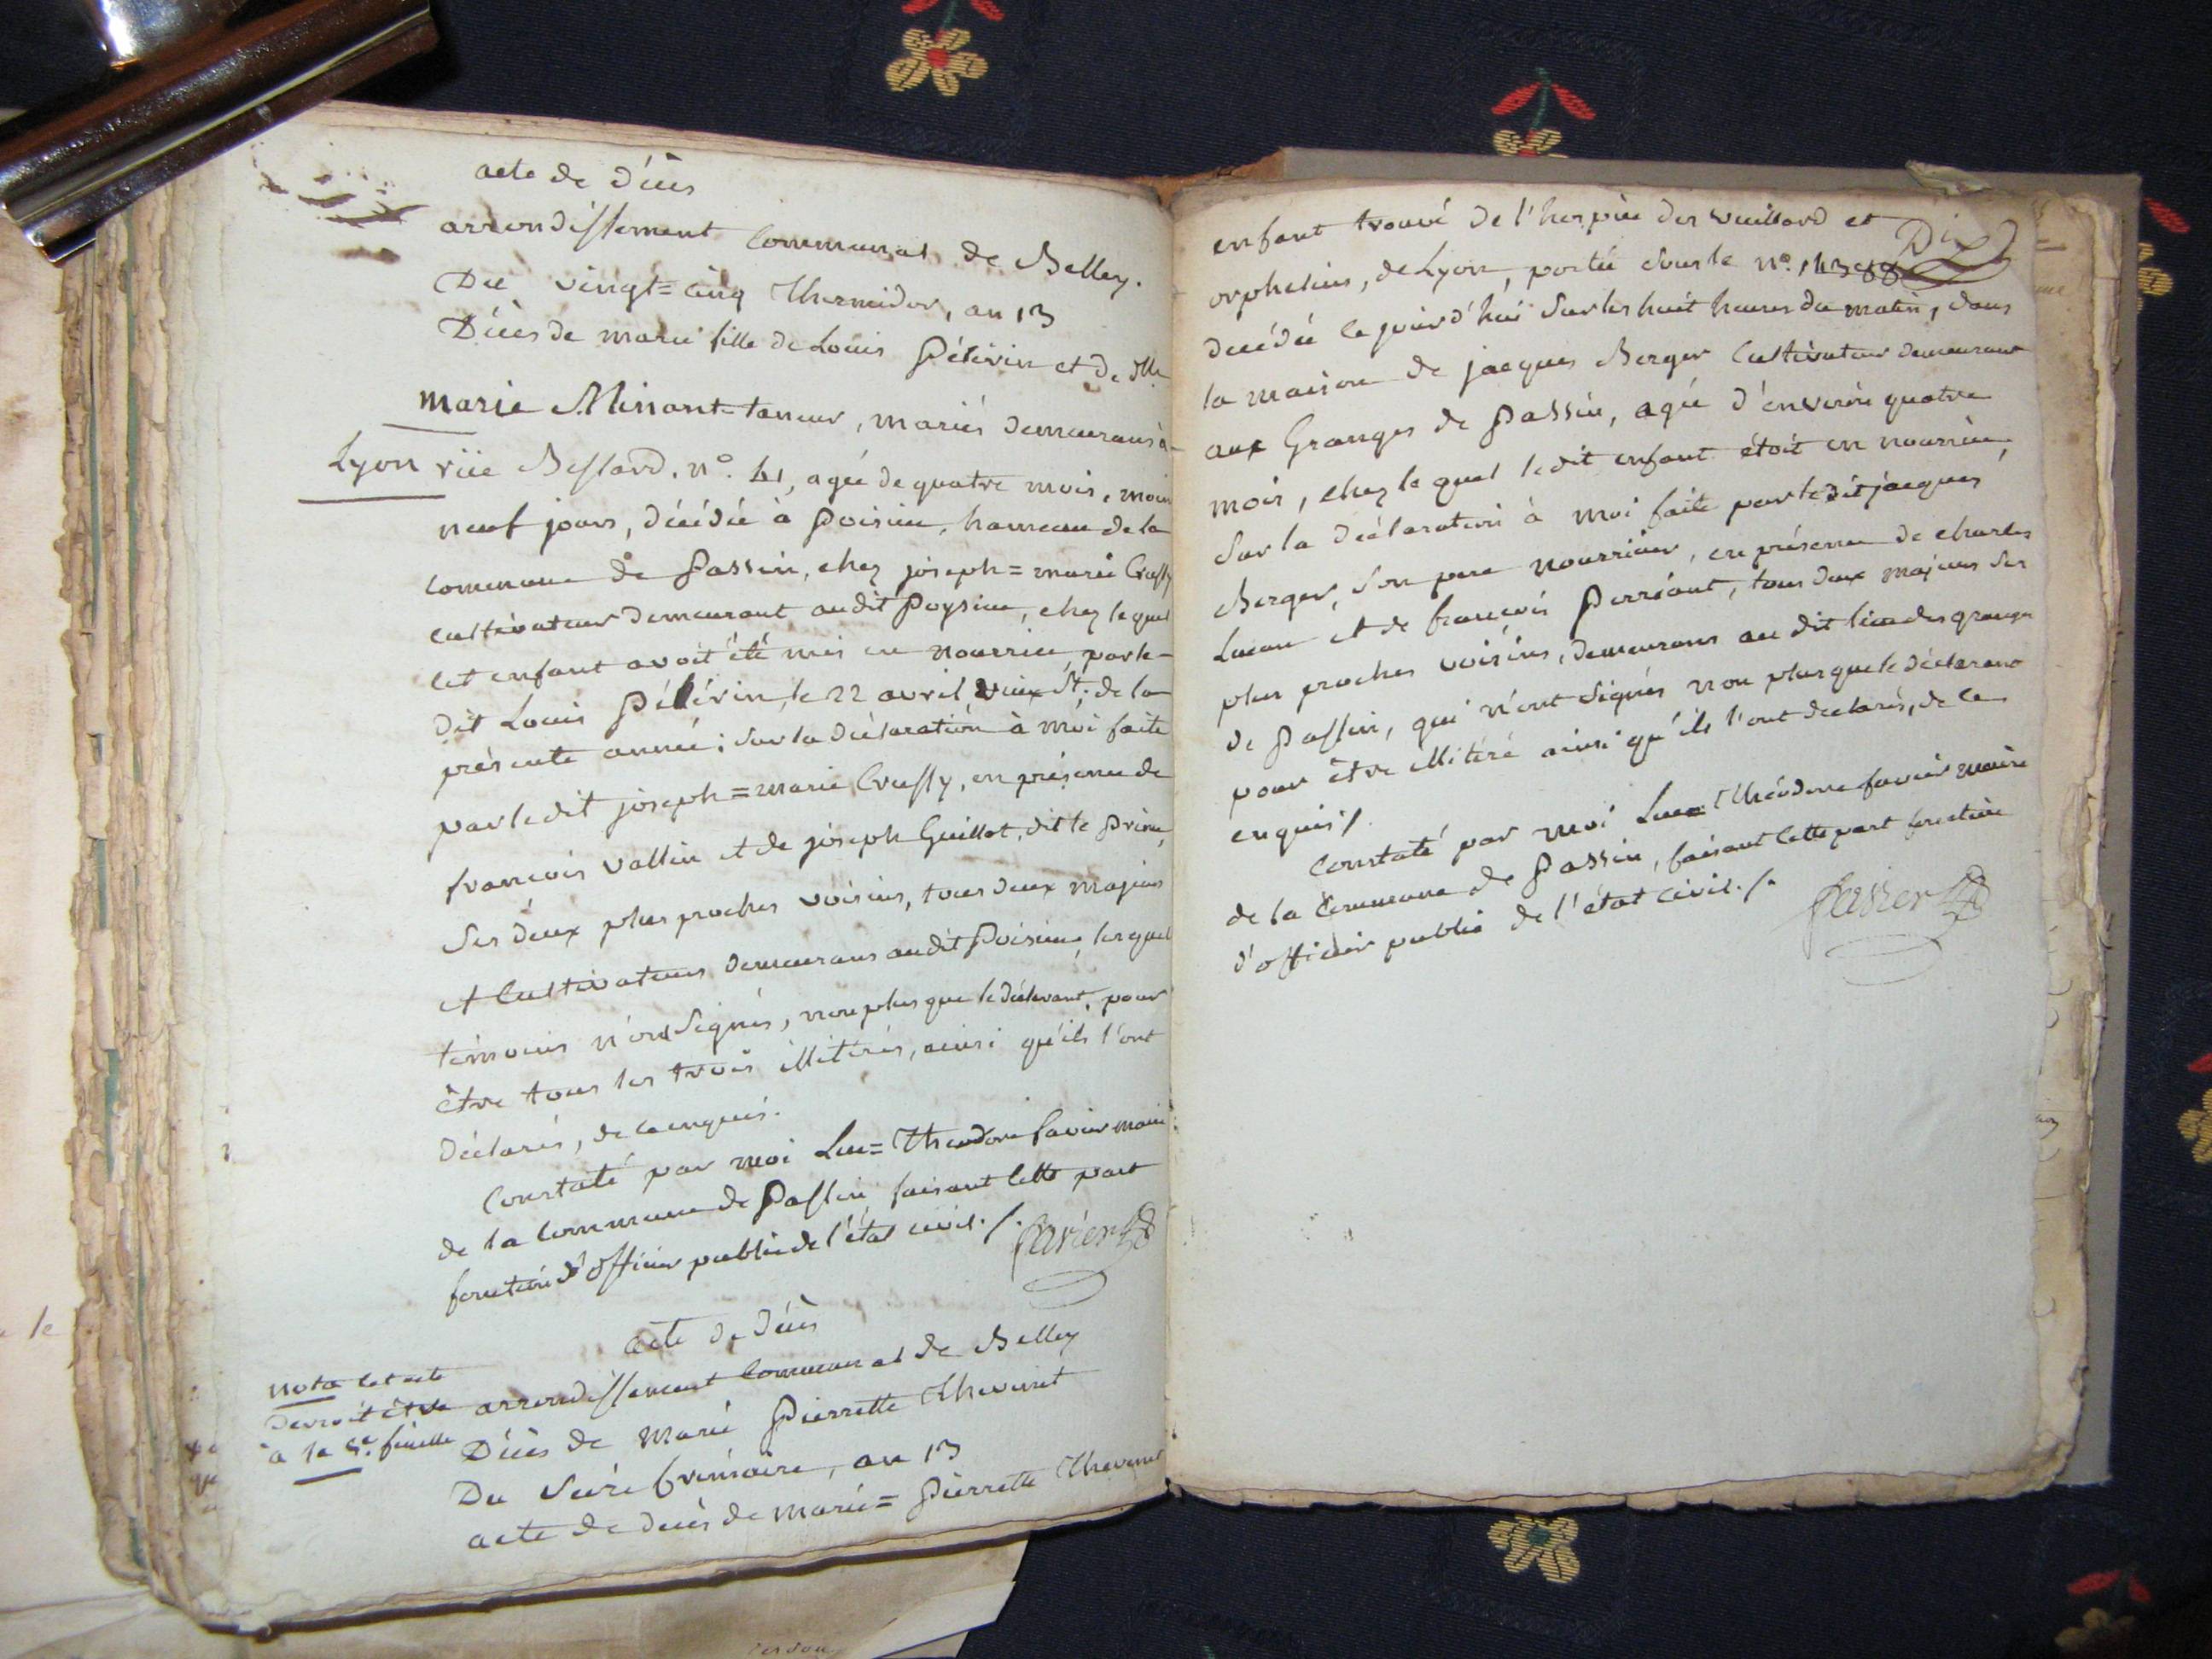 acte de décès
arrondissement communal de Belley.
Du vingt=cinq thermidor, an 13
Décès de marie fille de Louis Pélérin et de dlle
marie Minant=taneur, mariés demeurans à
Lyon rüe Bessard. n°. 41, agée de quatre mois, moins
neuf jours, décédée à Poisieu, hameau de la
commune de Passin, chez joseph=marie Crussy
cultivateur demeurant audit Poysieu, chez lequel
cet enfant avoit été mis en nourrice, par le
dit Louis Pélérin, le 22 avril, vieux St. de la
présente année; sur la déclaration à moi faite
par le dit joseph=marie Crussy, en présence de
françois vallin et de joseph Guillot, dit le Prince,
ses deux plus proches voisins, tous deux majeurs
et cultivateurs demeurans audit Poisieu, lesquels
témoins n'ont signés, non plus que le déclarant, pour
être tous les trois illitérés, ainsi qu'ils l'ont
déclarés, de ce enquis.
Constaté par moi Luc=Théodore favier maire
de la commune de Passin, faisant cette part
fonction d'officier public de l'état civil./.
favier
acte de décès
nota cet acte
devroit être
à la 5e. feuille
arrondissement communal de Belley
Décès de marie Pierrette Thevenet
Du seize frimaire, an 13
acte de décès de marie=Pierrette Thevenet
Dix
enfant trouvé de l'hospice des vieillard et
orphelins, de Lyon, portée sous le n°.
décédée ce jourd'hui sur les huit heures du matin, dans
la maison de jacques Berger cultivateur demeurant
aux Granges de Passin, agée d'environ quatre
mois, chez le quel le dit enfant étoit en nourrice,
sur la déclaration à moi faite par le dit jacques
Berger, son pere nourricier, en présence de charles
Lucan et de françois Perréant, tous deux majeurs ses
plus proches voisins, demeurans au dit lieu des granges
de Passin, qui n'ont signés non plus que le déclarant
pour être illitéré ainsi qu'ils l'ont déclarés, de ce
enquis/.
Constaté par moi Luc Théodore favier maire
de la commune de Passin, faisant cette part fonction
d'officier public de l'état civil./.
favier